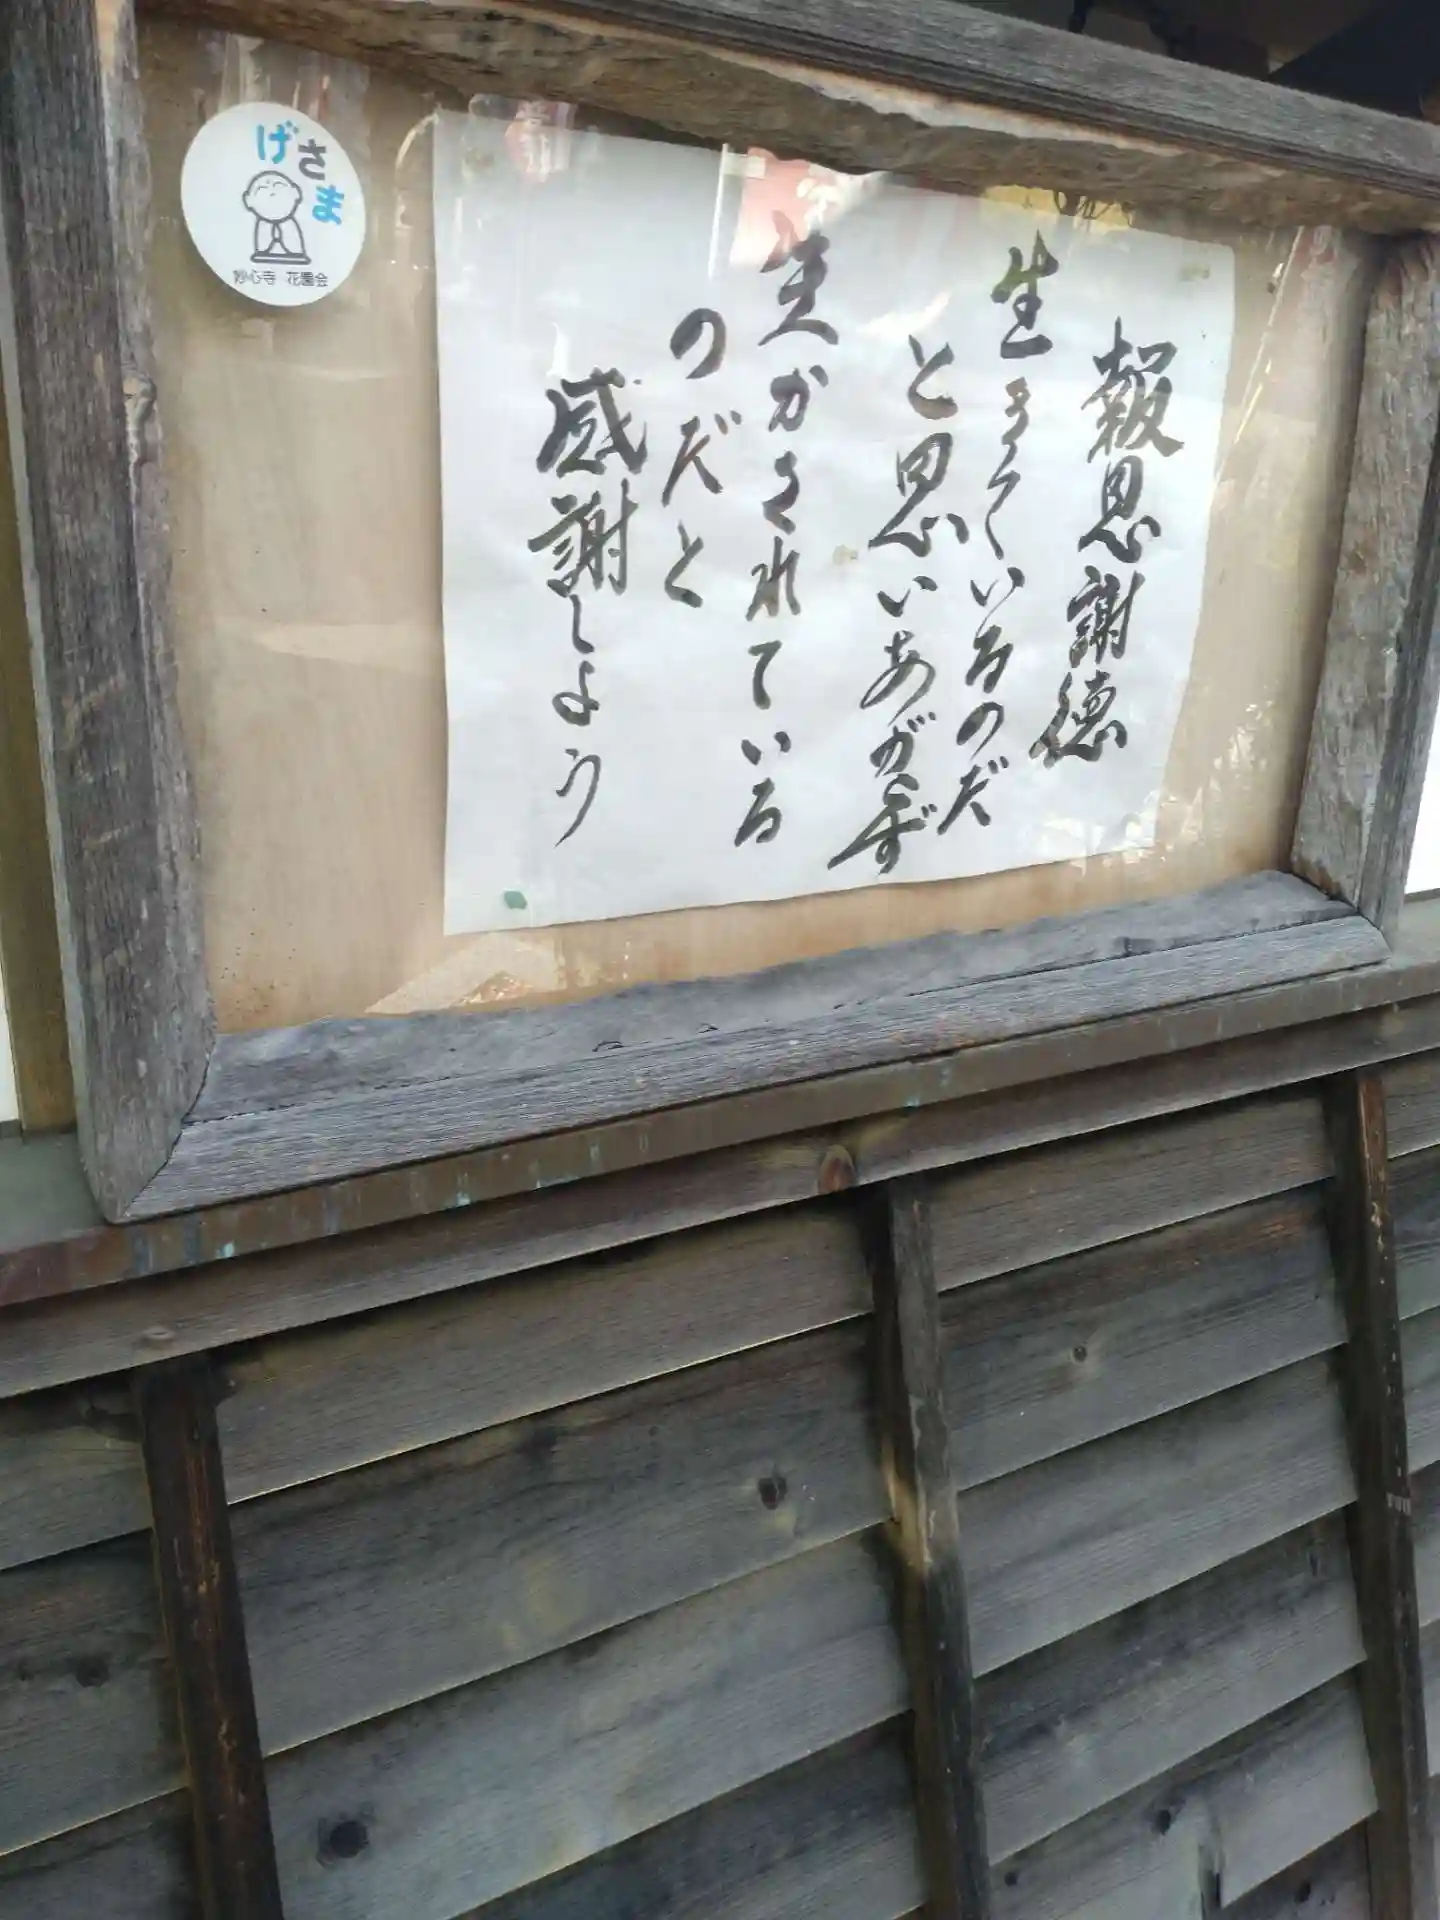 報恩謝徳
生きているのだ
と思いあがらず
生かされている
のだと
感謝しよう
げさま
妙心寺 花園会